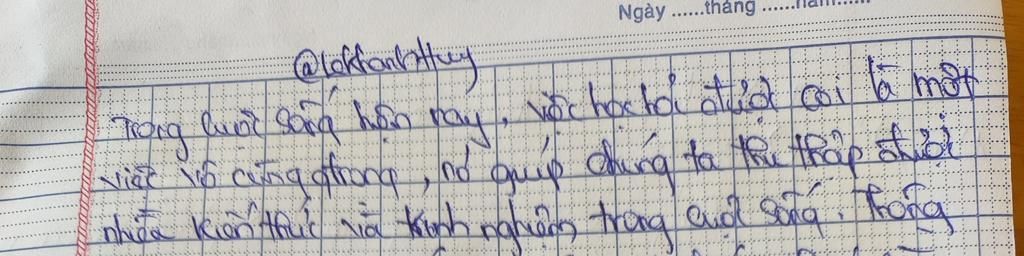 Ngày ......tháng ......năm......
@lokhanhHuy
Trong cuộc sống hện nay, việc học hỏi được coi là một
việc vô cùng qtrong, nó giúp chúng ta thu thập được
nhiều kiến thức và kinh nghiệm trong cuộc sống. Trong